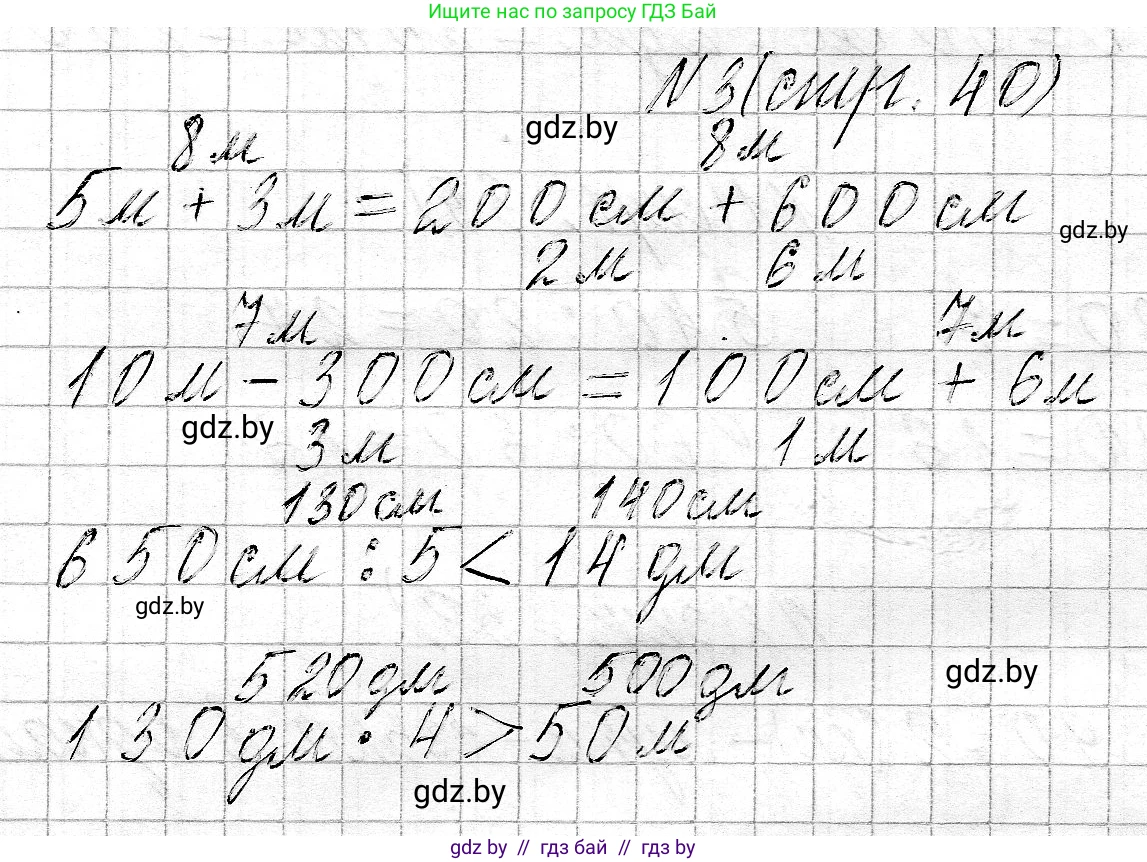 Ищите нас по запросу ГДЗ Бай
N 3 (стр. 40)
gdz.by
8 м 8 м
5 м + 3 м = 200 см + 600 см
gdz.by
2 м 6 м
7 м 7 м
10 м - 300 см = 100 см + 6 м
gdz.by
3 м 1 м
130 см 140 см
650 см : 5 < 14 дм
gdz.by
520 дм 500 дм
gdz.by
130 дм · 4 > 50 м
gdz.by
gdz by // гдз бай // гдз by